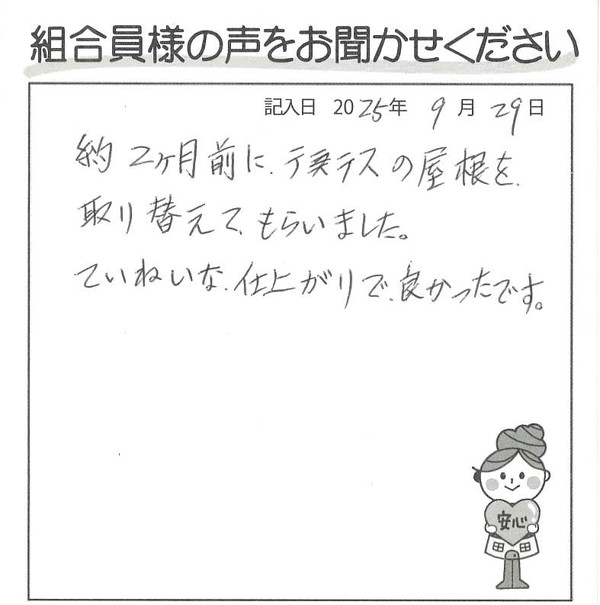 組合員様の声をお聞かせください
記入日 2025年 9月 29日
約2ヶ月前に、テラスの屋根を、
取り替えて、もらいました。
ていねいな、仕上がりで、良かったです。
安心